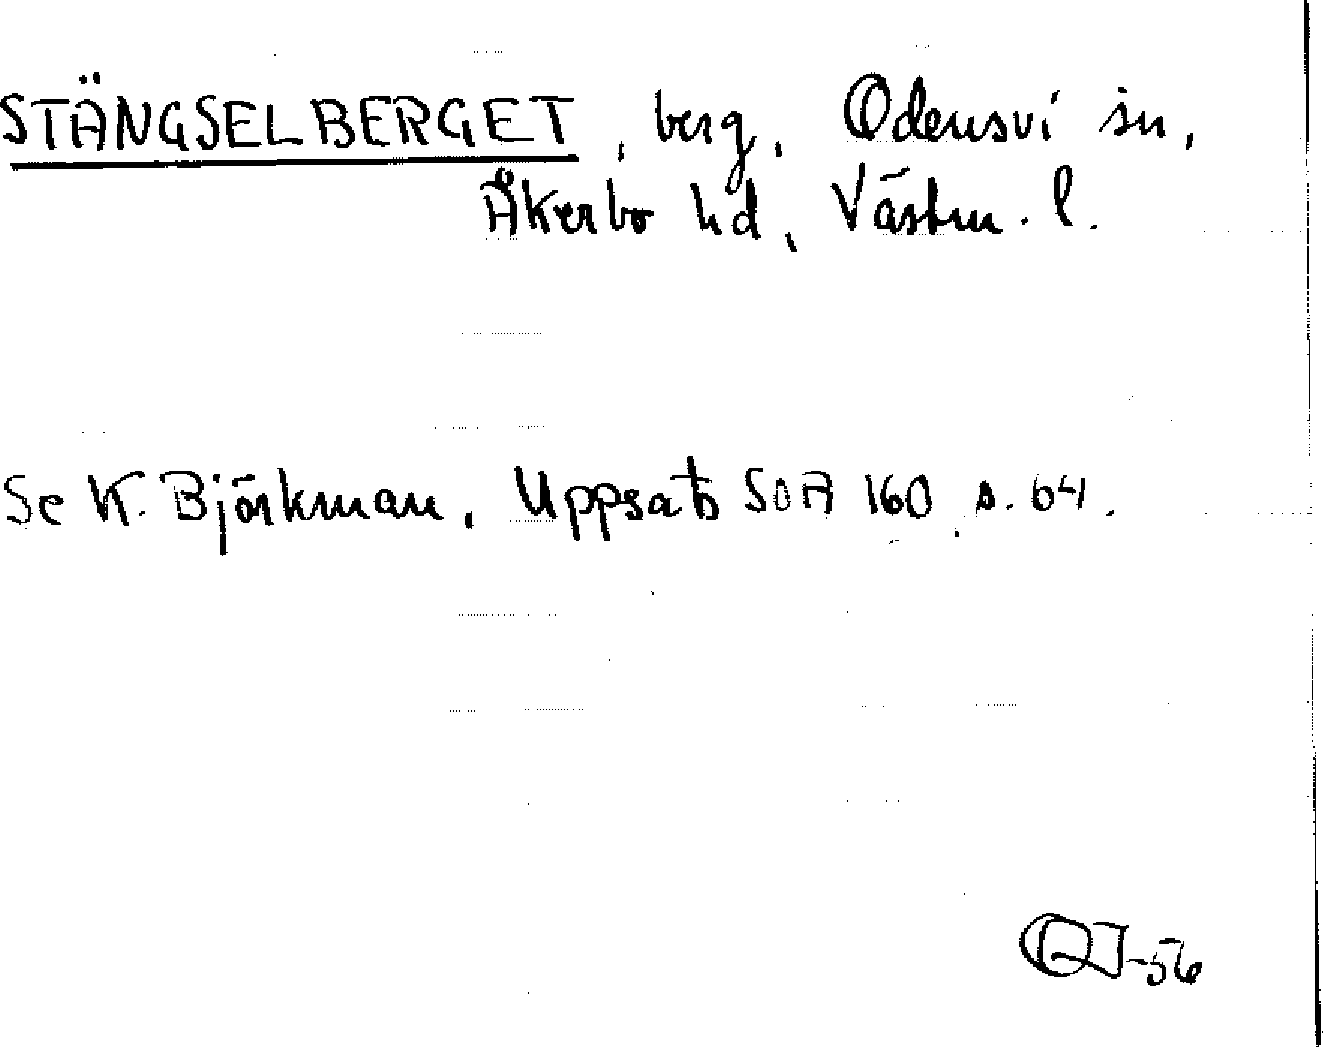 STÄNGSELBERGET, berg, Odensvi sn,
Åkerbo hd, Västm. l.
Se K. Björkman, Uppsats SOA 160, s. 64.
-56